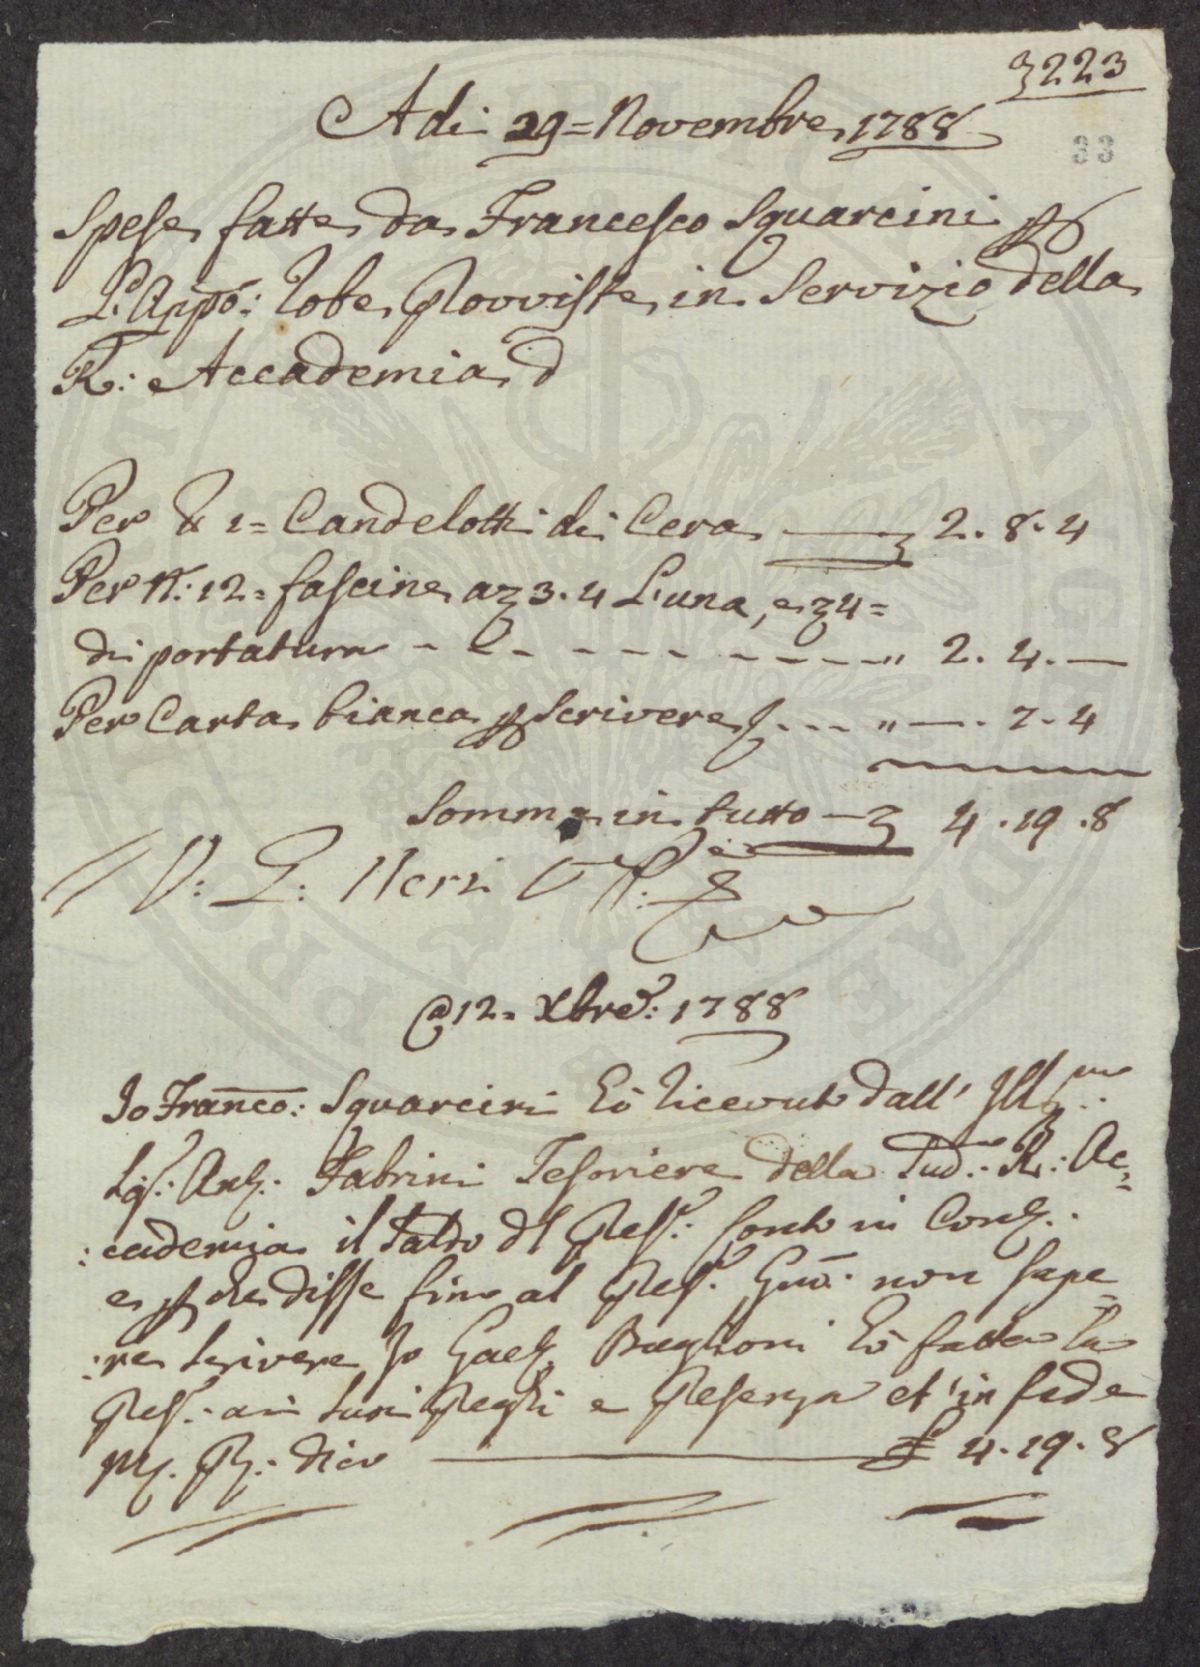 3223
Adi 29 = Novembre 1788
33
Spese fatte da Francesco Squarcini p
L'Appo: robe provviste in Servizio della
R: Accademia d
Per lb 1 = Candelotti di Cera 2. 8. 4
Per N: 12 = fascine a 3. 4 L'una, e 4 =
di portatura - - - - - - - - " 2. 4. —
Per Carta bianca p scrivere - - - " —. 7. 4
Somma in tutto — 4. 19. 8
V: Neri
@ 12 = Xbre: 1788
Io Franco: Squarcini hò ricevuto dall' Illmo:
Sig: Ant: Fabrini Tesoriere della Sud: R: Ac=
:cademia il saldo del Pres: Conto in Cont:
e p che disse fino al Pres: Gno: non sape=
:re scrivere Io Gaet: Baglioni hò fatta la
Pres: a suoi Preghi e Presenza et in fede
M. P: dico — £ 4. 19. 8